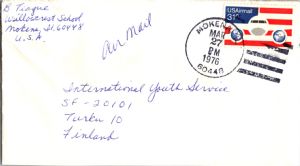 B Teague
Willowcrest School
Mokena, Il 60448
U.S.A.
Air Mail
USAirmail
31c
MOKENA
MAR
27
PM
1976
60448
International Youth Service
SF-20101
Turku 10
Finland